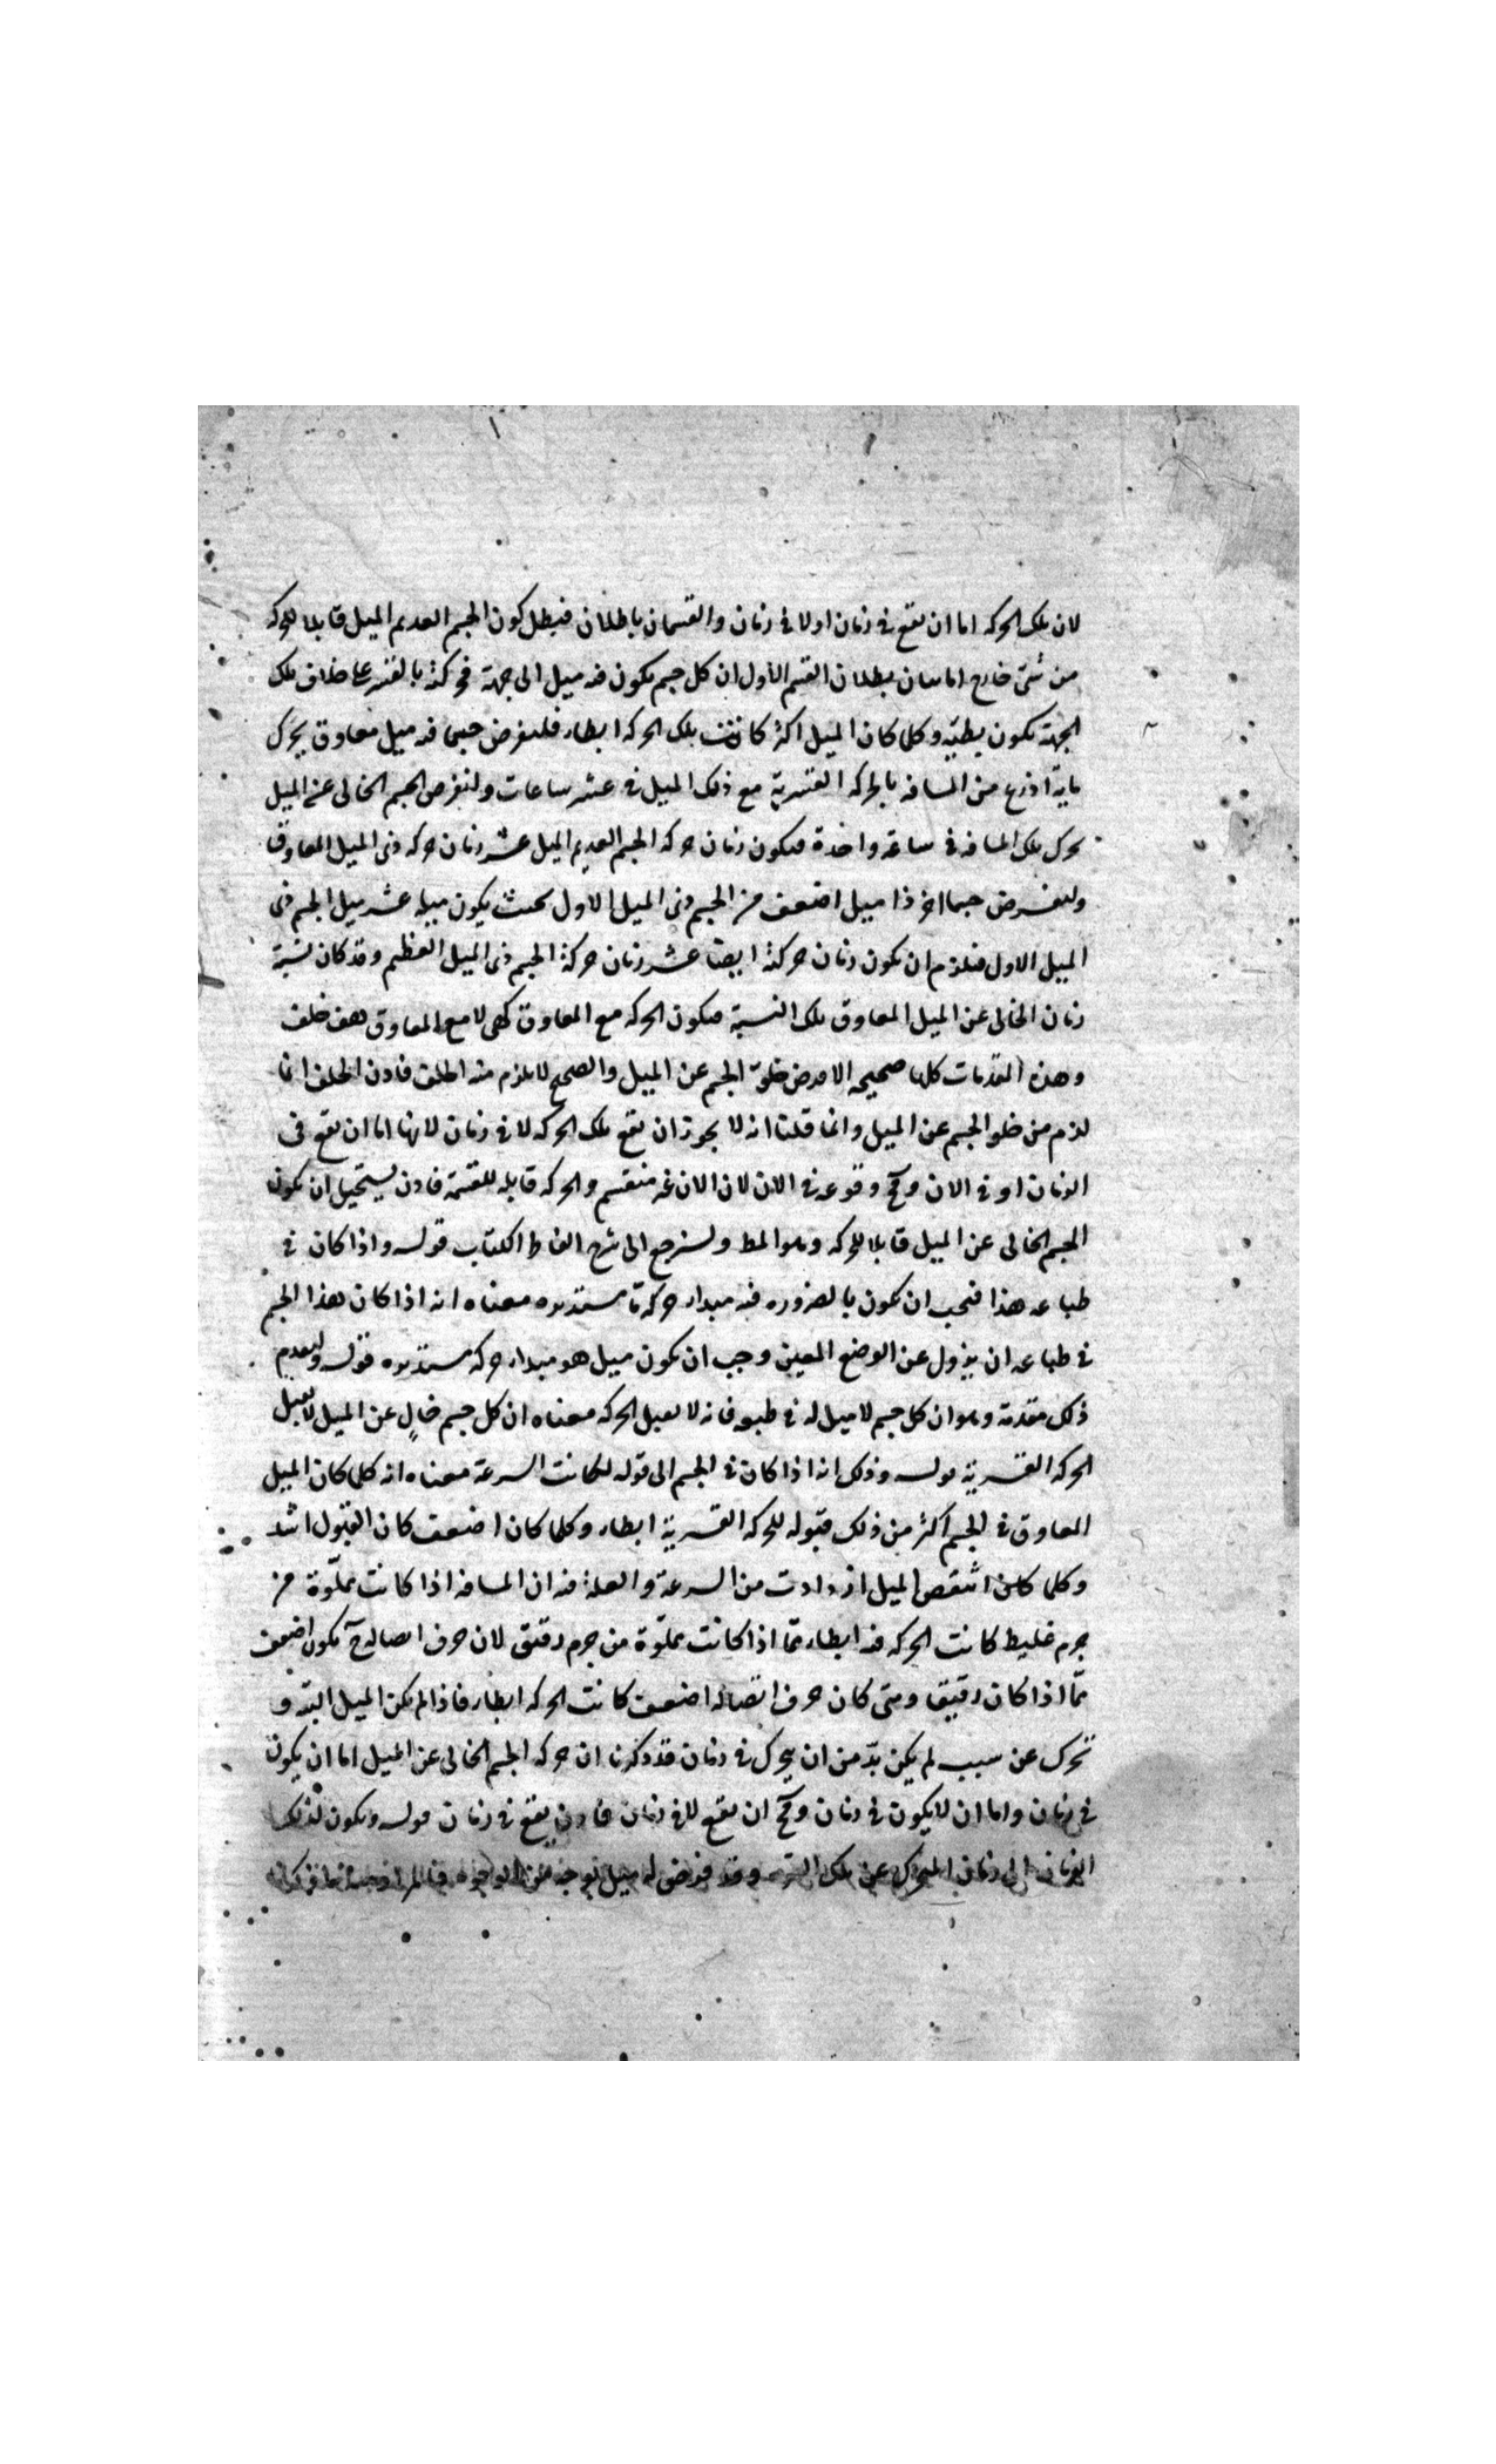 لان تلك الحركه اما ان تقع فى زمان او لا فى زمان والقسمان باطلان فبطل كون الجسم العديم الميل قابلا للحركه
من شئ خارج اما بيان بطلان القسم الاول ان كل جسم يكون فيه ميل الى جهة فحركته بالقسر على خلاف تلك
الجهة تكون بطيّة وكلما كان الميل اكثر كانت تلك الحركه ابطاء فليفرض جسما فيه ميل معاوق يحرك
ماية اذرع من المسافه بالحركه القسرية مع ذلك الميل فى عشر ساعات ولنفرض الجسم الخالى عن الميل
تحرك تلك المسافه فى ساعة واحدة فيكون زمان حركه الجسم العديم الميل عشر زمان حركه ذى الميل المعاوق
ولنفرض جسما اخر ذا ميل اضعف من الجسم ذى الميل الاول بحيث يكون ميله عشر ميل الجسم ذى
الميل الاول فيلزم ان تكون زمان حركتة ايضا عشر زمان حركة الجسم ذى الميل العظيم وقد كان نسبة
زمان الخالى عن الميل المعاوق تلك النسبة فيكون الحركه مع المعاوق كهى لا مع المعاوق هف خلف
وهذه المقدمات كلها صحيحه الا فرض خلوّ الجسم عن الميل والصحيح لا يلزم منه الخلف فاذن الخلف انما
لزم من خلو الجسم عن الميل وانما قلنا انه لا يجوز ان تقع تلك الحركه لا فى زمان لانها اما ان تقع فى
الزمان او فى الان ومح وقوعه فى الان لان الان غير منقسم والحركه قابله للقسمة فاذن يستحيل ان تكون
الجسم الخالى عن الميل قابلا للحركه وهو المط ولنرجع الى شرح الفاظ الكتاب قوله واذا كان فى
طباعه هذا فيجب ان تكون بالضروره فيه مبداء حركه مّا مستديره معناه انه اذا كان هذا الجسم
فى طباعه ان يزول عن الوضع المعين وجب ان تكون ميل هو مبداء حركه مستديره قوله وليقدم
ذلك مقدمة وهو ان كل جسم لا ميل له فى طبعه فانه لا يقبل الحركه معناه ان كل جسم خالٍ عن الميل لا يقبل
الحركه القسرية قوله وذلك انه اذا كان فى الجسم الى قوله لكانت السرعة معناه انه كلما كان الميل
المعاوق فى الجسم اكثر من ذلك قبوله للحركه القسرية ابطاء وكلما كان اضعف كان القبول اشد
وكلما كان انتقص الميل ازدادت من السرعة والعلة فيه ان المسافه اذا كانت مملّوة من
جرم غليظ كانت الحركه فيه ابطاء مّما اذا كانت مملّوة من جرم رقيق لان خرق اتصاله ح يكون اضعف
مّما اذا كان رقيقا ومتى كان خرق اتصاله اضعف كانت الحركه ابطاء فاذا لم يكن الميل البتّه و
تحرك عن سبب لم يكن بدّ من ان يتحرك فى زمان قد ذكرنا ان حركه الجسم الخالى عن الميل اما ان يكون
فى زمان واما ان لا يكون فى زمان ومح ان تقع لا فى زمان فاذن يقع فى زمان قوله ويكون لذلك
الزمان الى زمان المتحرك عن تلك القوة وقد فرض له ميل بوجه من الوجوه